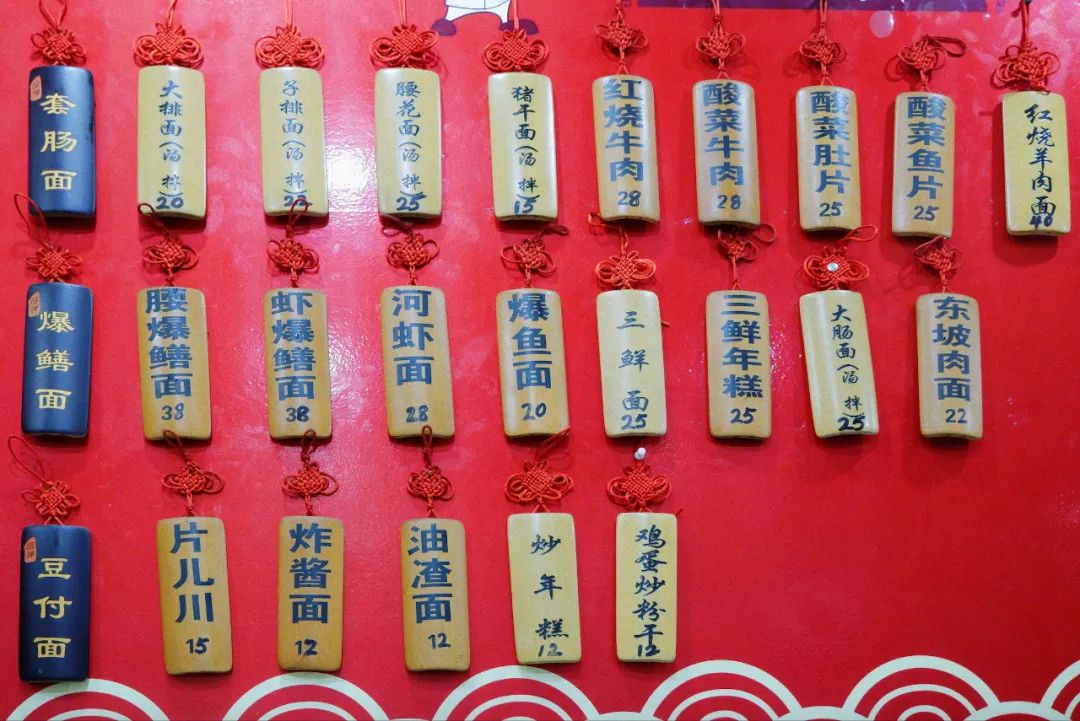 套肠面
大排面(汤 拌)
20
子排面(汤 拌)
腰花面(汤 拌)
25
猪干面(汤 拌)
15
红烧牛肉
28
酸菜牛肉
28
酸菜肚片
25
酸菜鱼片
25
红烧羊肉面
40
爆鳝面
腰爆鳝面
38
虾爆鳝面
38
河虾面
28
爆鱼面
20
三鲜面
25
三鲜年糕
25
大肠面(汤 拌)
25
东坡肉面
22
豆付面
片儿川
15
炸酱面
12
油渣面
12
炒年糕
12
鸡蛋炒粉干
12